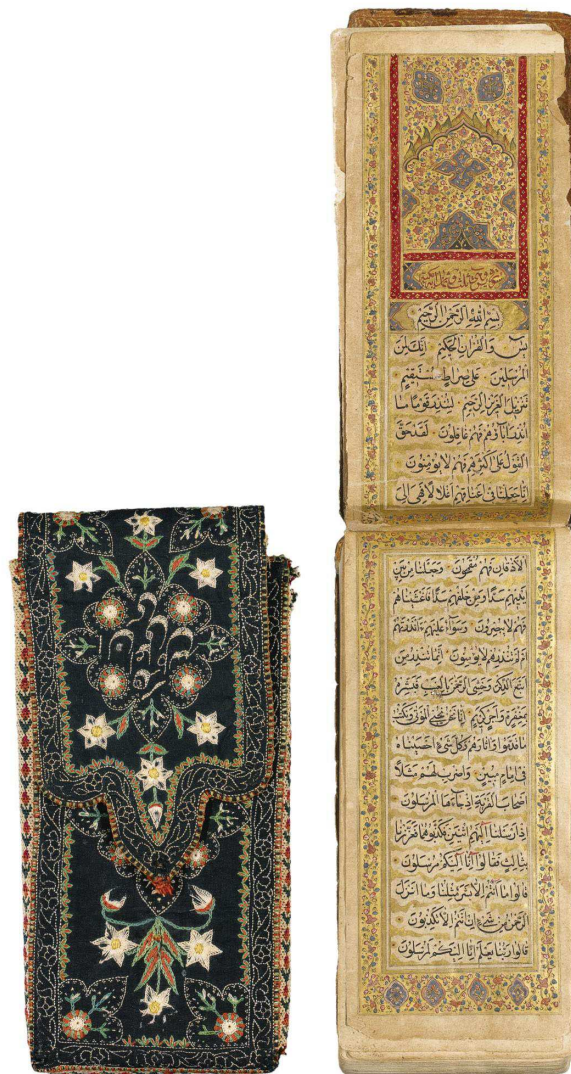 بسم الله الرحمن الرحيم
يس والقران الحكيم انك لمن
المرسلين على صراط مستقيم
تنزيل العزيز الرحيم لتنذر قوما ما
انذر اباؤهم فهم غافلون لقد حق
القول على اكثرهم فهم لا يؤمنون
انا جعلنا في اعناقهم اغلالا فهي الى
الاذقان فهم مقمحون وجعلنا من بين
ايديهم سدا ومن خلفهم سدا فاغشيناهم
فهم لا يبصرون وسواء عليهم ءانذرتهم
ام لم تنذرهم لا يؤمنون انما تنذر من
اتبع الذكر وخشي الرحمن بالغيب فبشره
بمغفرة واجر كريم انا نحن نحيي الموتى ونكتب
ما قدموا واثارهم وكل شيء احصيناه
في امام مبين واضرب لهم مثلا
اصحاب القرية اذ جاءها المرسلون
اذ ارسلنا اليهم اثنين فكذبوهما فعززنا
بثالث فقالوا انا اليكم مرسلون
قالوا ما انتم الا بشر مثلنا وما انزل
الرحمن من شيء ان انتم الا تكذبون
قالوا ربنا يعلم انا اليكم لمرسلون